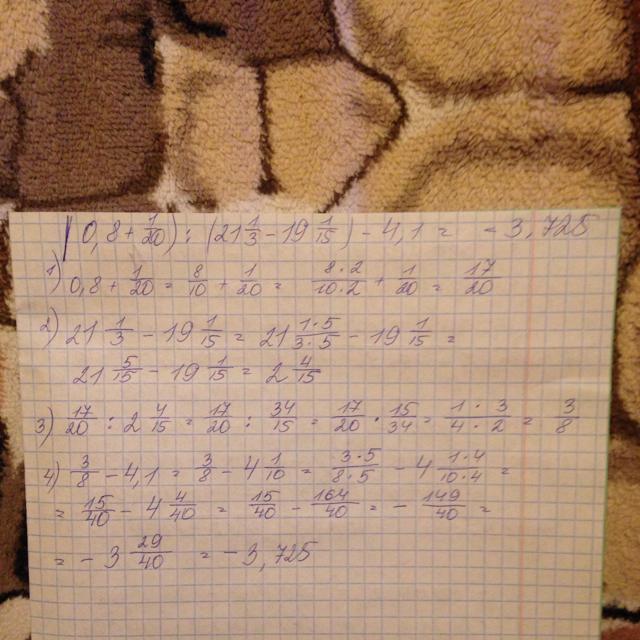 (0,8 + 1/20) : (21 1/3 - 19 1/15) - 4,1 = -3,725
1) 0,8 + 1/20 = 8/10 + 1/20 = 8·2/10·2 + 1/20 = 17/20
2) 21 1/3 - 19 1/15 = 21 1·5/3·5 - 19 1/15 =
21 5/15 - 19 1/15 = 2 4/15
3) 17/20 : 2 4/15 = 17/20 : 34/15 = 17/20 · 15/34 = 1·3/4·2 = 3/8
4) 3/8 - 4,1 = 3/8 - 4 1/10 = 3·5/8·5 - 4 1·4/10·4 =
= 15/40 - 4 4/40 = 15/40 - 164/40 = - 149/40 =
= - 3 29/40 = -3,725